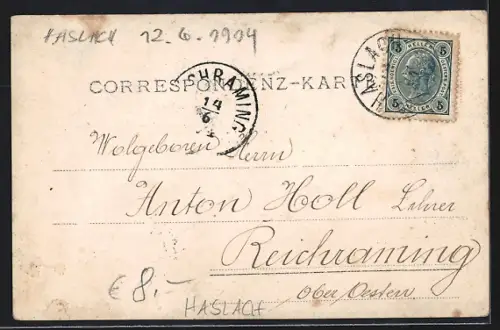 HASLACH 12.6.1904
HASLACH
5 HELLER 5
5 HELLER 5
CORRESPONDENZ-KARTE
CHRAMING
14
6
Wolgeboren Herrn
Anton Holl Lehrer
Reichraming
Ober Oesterr
€ 8.-
HASLACH